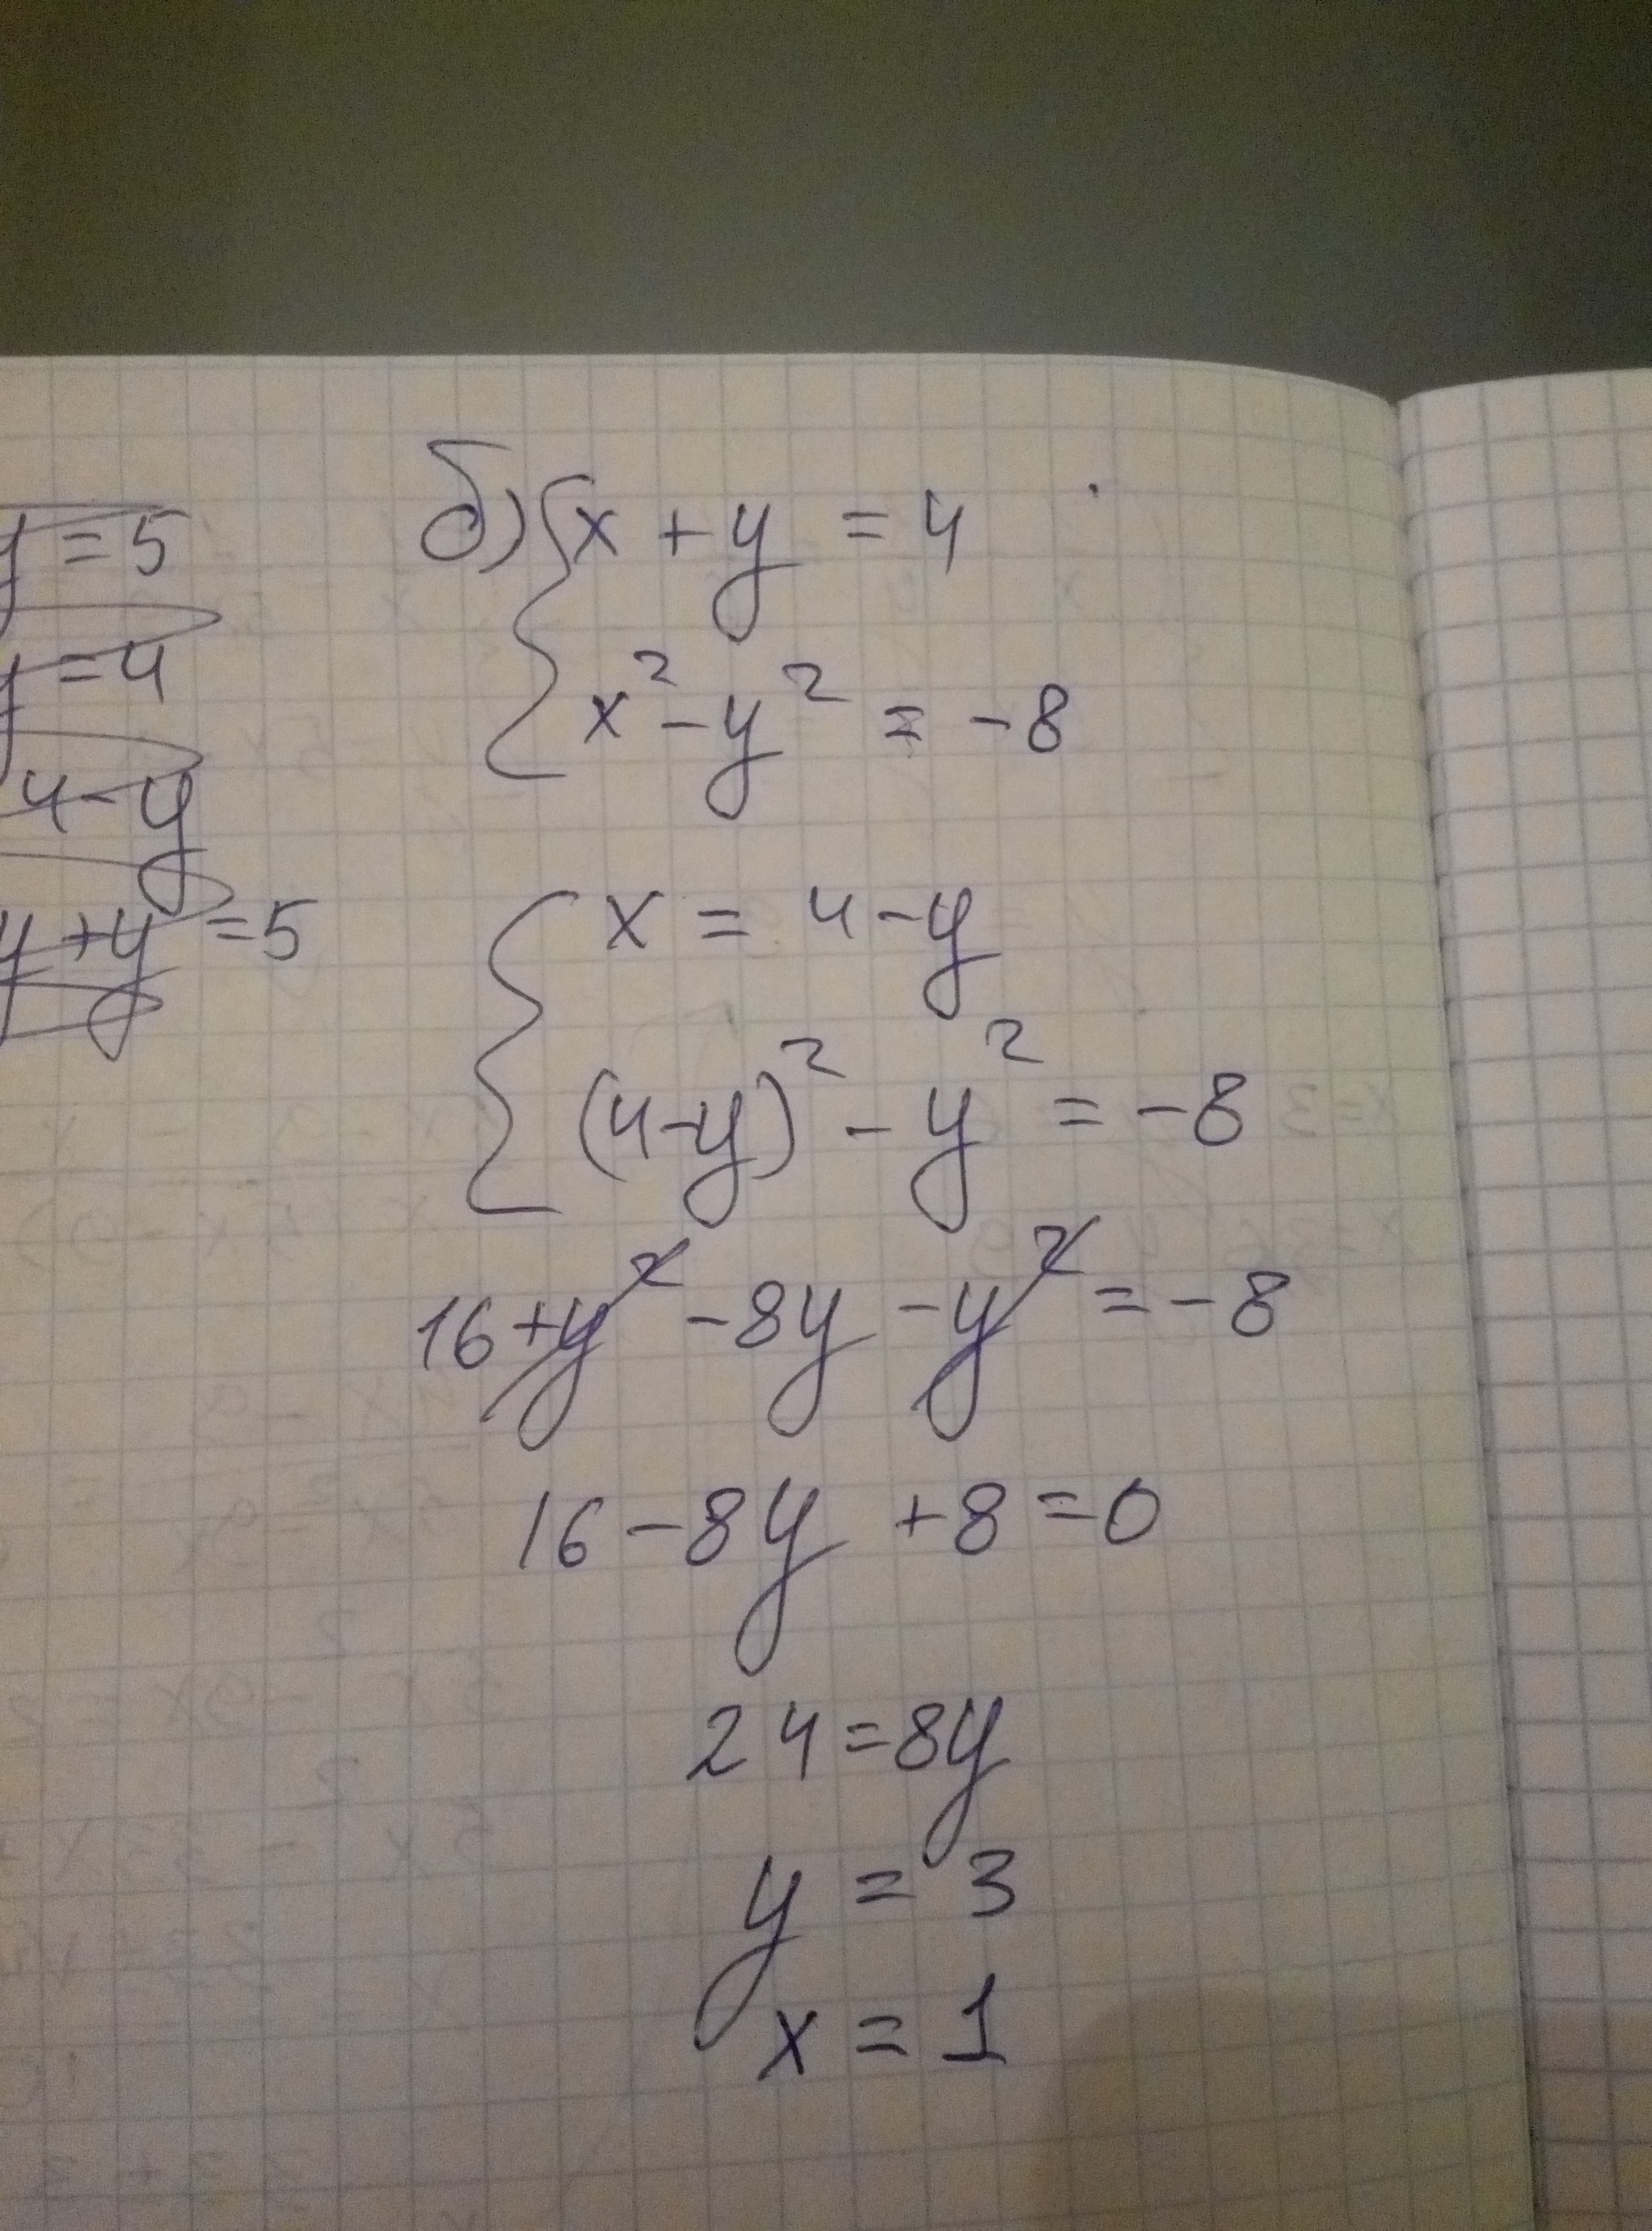 y = 5
y = 4
4 - y
y + y = 5
б) { x + y = 4
x² - y² = -8
{ x = 4 - y
(4 - y)² - y² = -8
16 + y² - 8y - y² = -8
16 - 8y + 8 = 0
24 = 8y
y = 3
x = 1